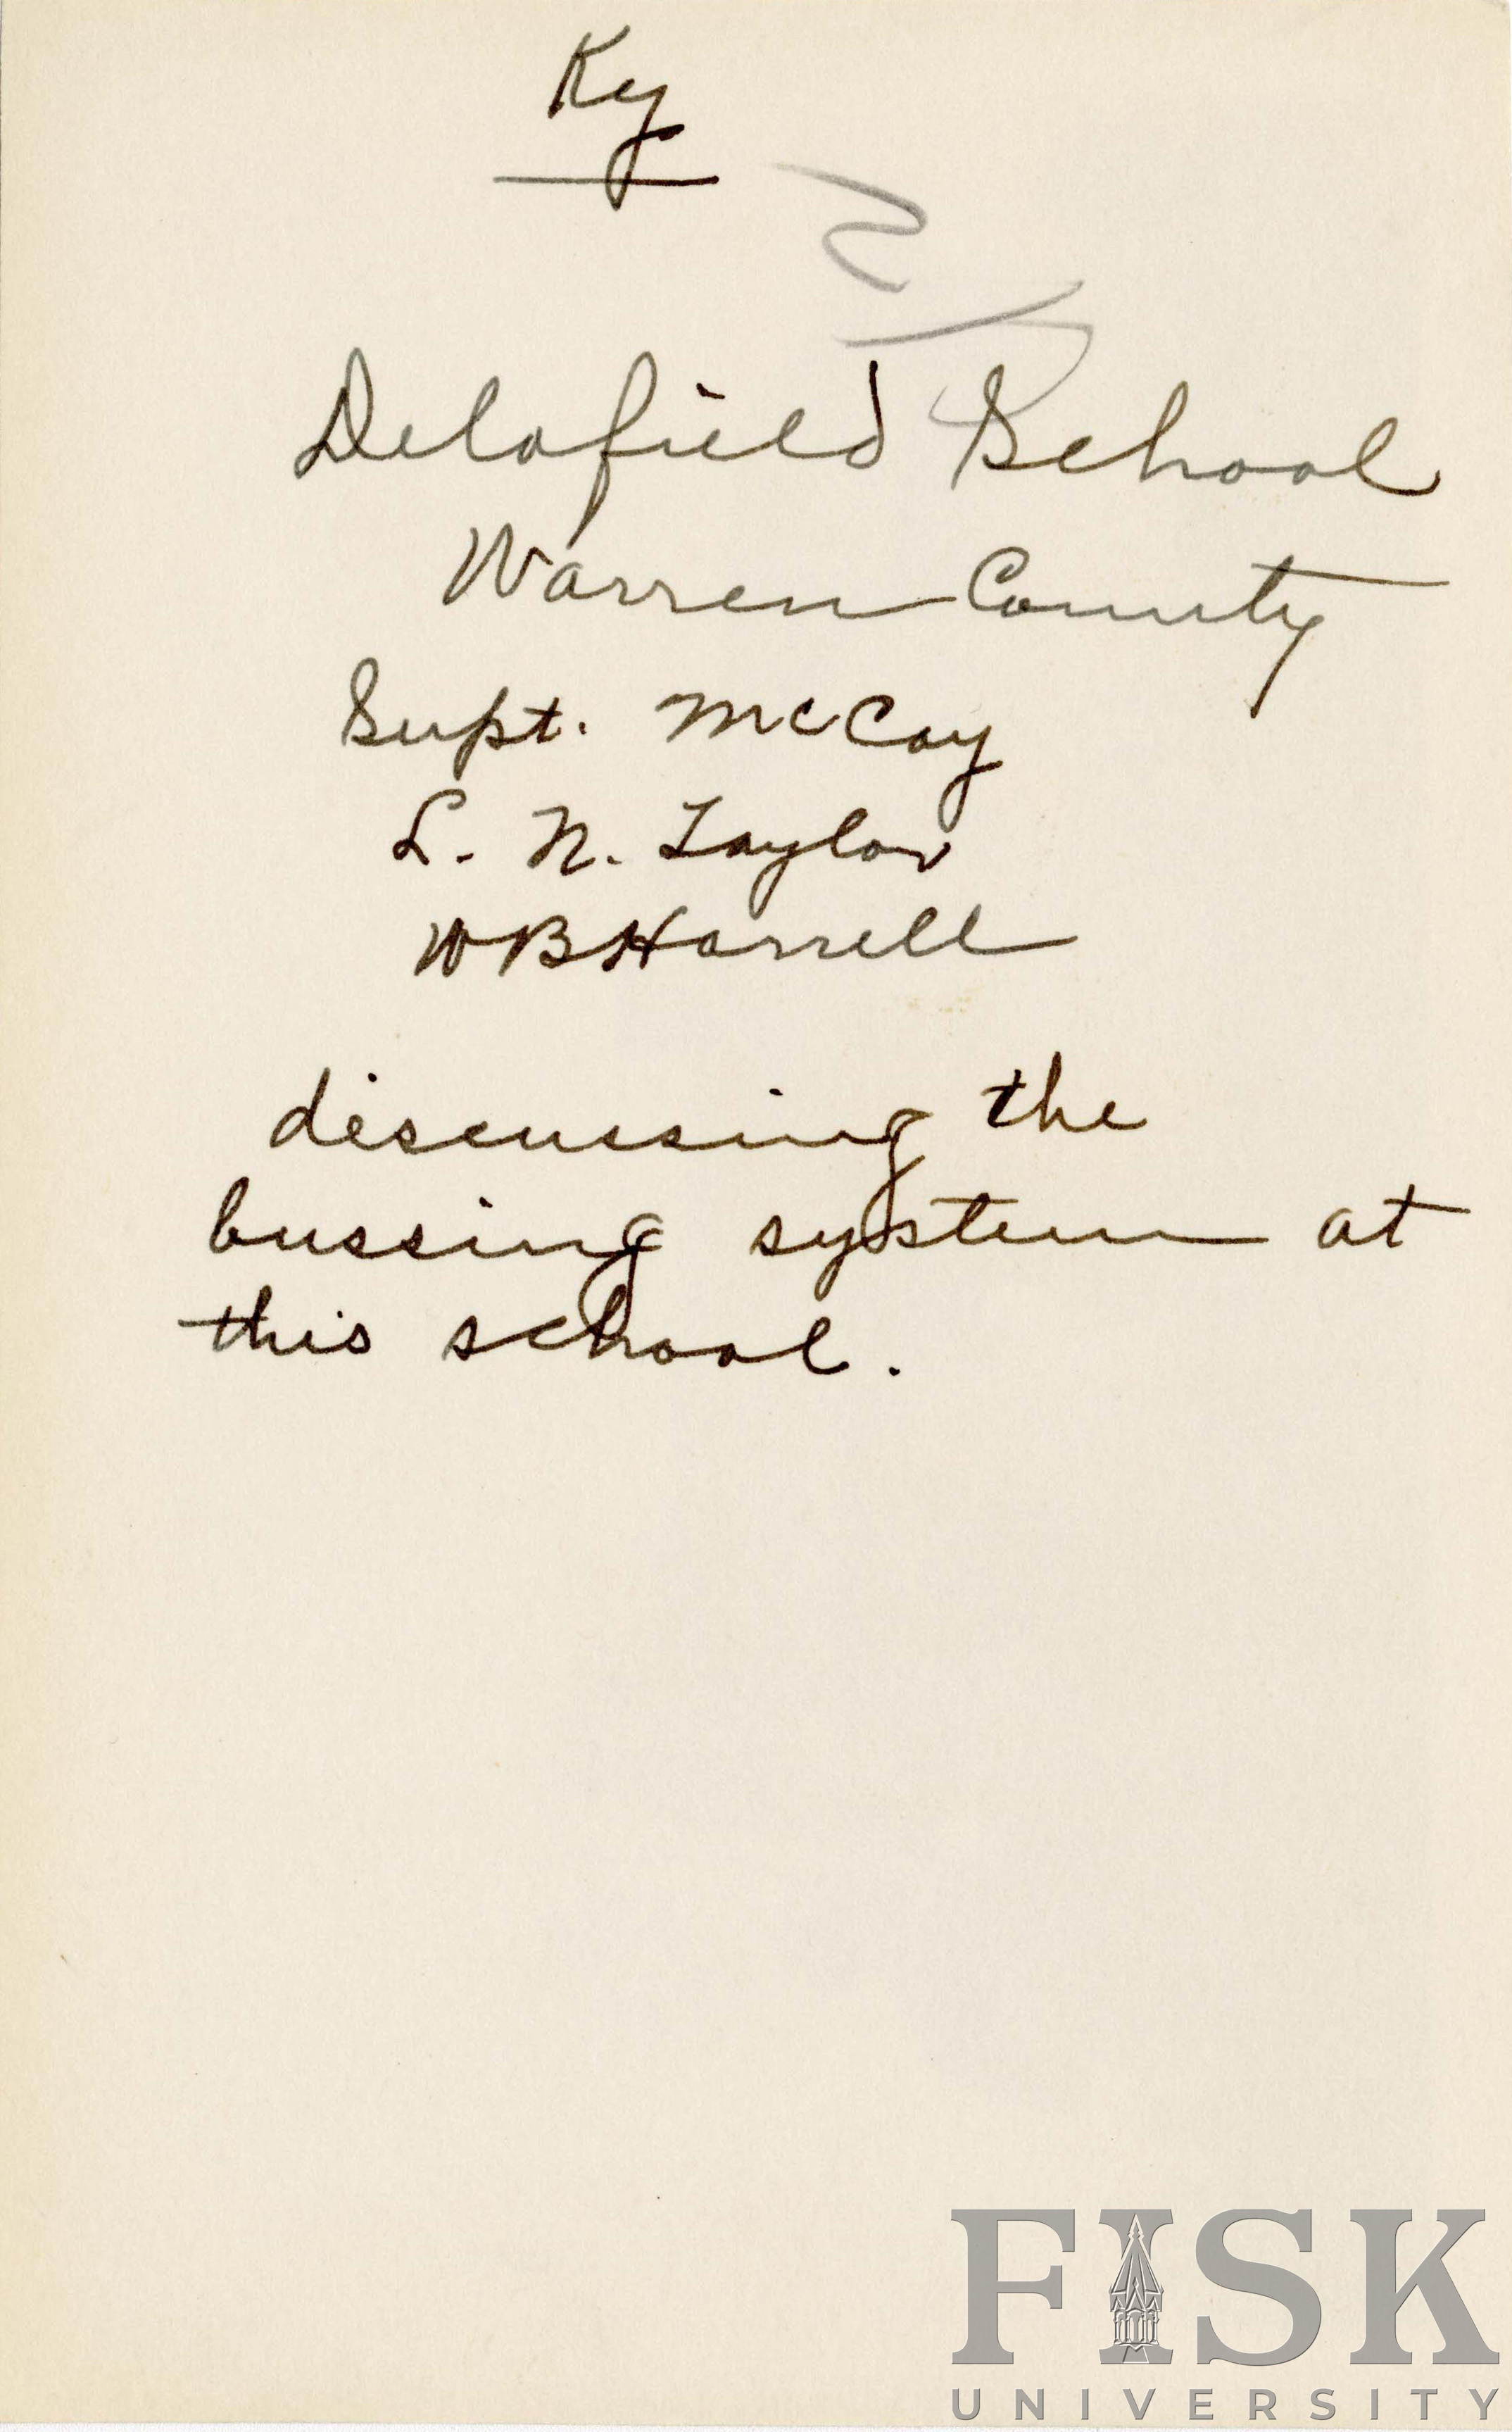 Ky
Delafield School
Warren County
Supt. McCoy
L. N. Taylor
W B Harrell
discussing the
bussing system at
this school.
FISK
UNIVERSITY